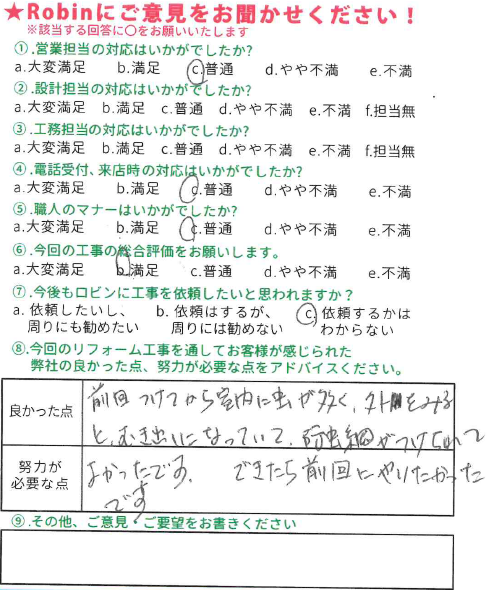 ★Robinにご意見をお聞かせください！
※該当する回答に〇をお願いいたします
①.営業担当の対応はいかがでしたか?
a.大変満足 b.満足 c.普通 d.やや不満 e.不満
②.設計担当の対応はいかがでしたか?
a.大変満足 b.満足 c.普通 d.やや不満 e.不満 f.担当無
③.工務担当の対応はいかがでしたか?
a.大変満足 b.満足 c.普通 d.やや不満 e.不満 f.担当無
④.電話受付、来店時の対応はいかがでしたか?
a.大変満足 b.満足 c.普通 d.やや不満 e.不満
⑤.職人のマナーはいかがでしたか?
a.大変満足 b.満足 c.普通 d.やや不満 e.不満
⑥.今回の工事の総合評価をお願いします。
a.大変満足 b.満足 c.普通 d.やや不満 e.不満
⑦.今後もロビンに工事を依頼したいと思われますか？
a. 依頼したいし、 b. 依頼はするが、 c. 依頼するかは
周りにも勧めたい 周りには勧めない わからない
⑧.今回のリフォーム工事を通してお客様が感じられた
弊社の良かった点、努力が必要な点をアドバイスください。
良かった点
前回つけてから室内に虫が多く、外をみる
と、むき出しになっていて、防虫網がつけられて
努力が
必要な点
よかったです。 できたら前回にやりたかった
です
⑨.その他、ご意見・ご要望をお書きください